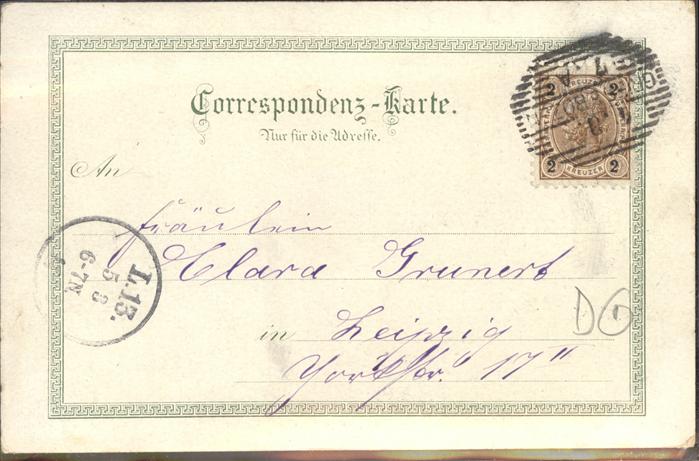 Correspondenz-Karte.
Nur für die Adresse.
An
Fräulein
Clara Grunert
in Leipzig
Yorkstr. 17"
L.13.
5 3
6-7N
2 2
2 2
KREUZER
KREUZER
DG